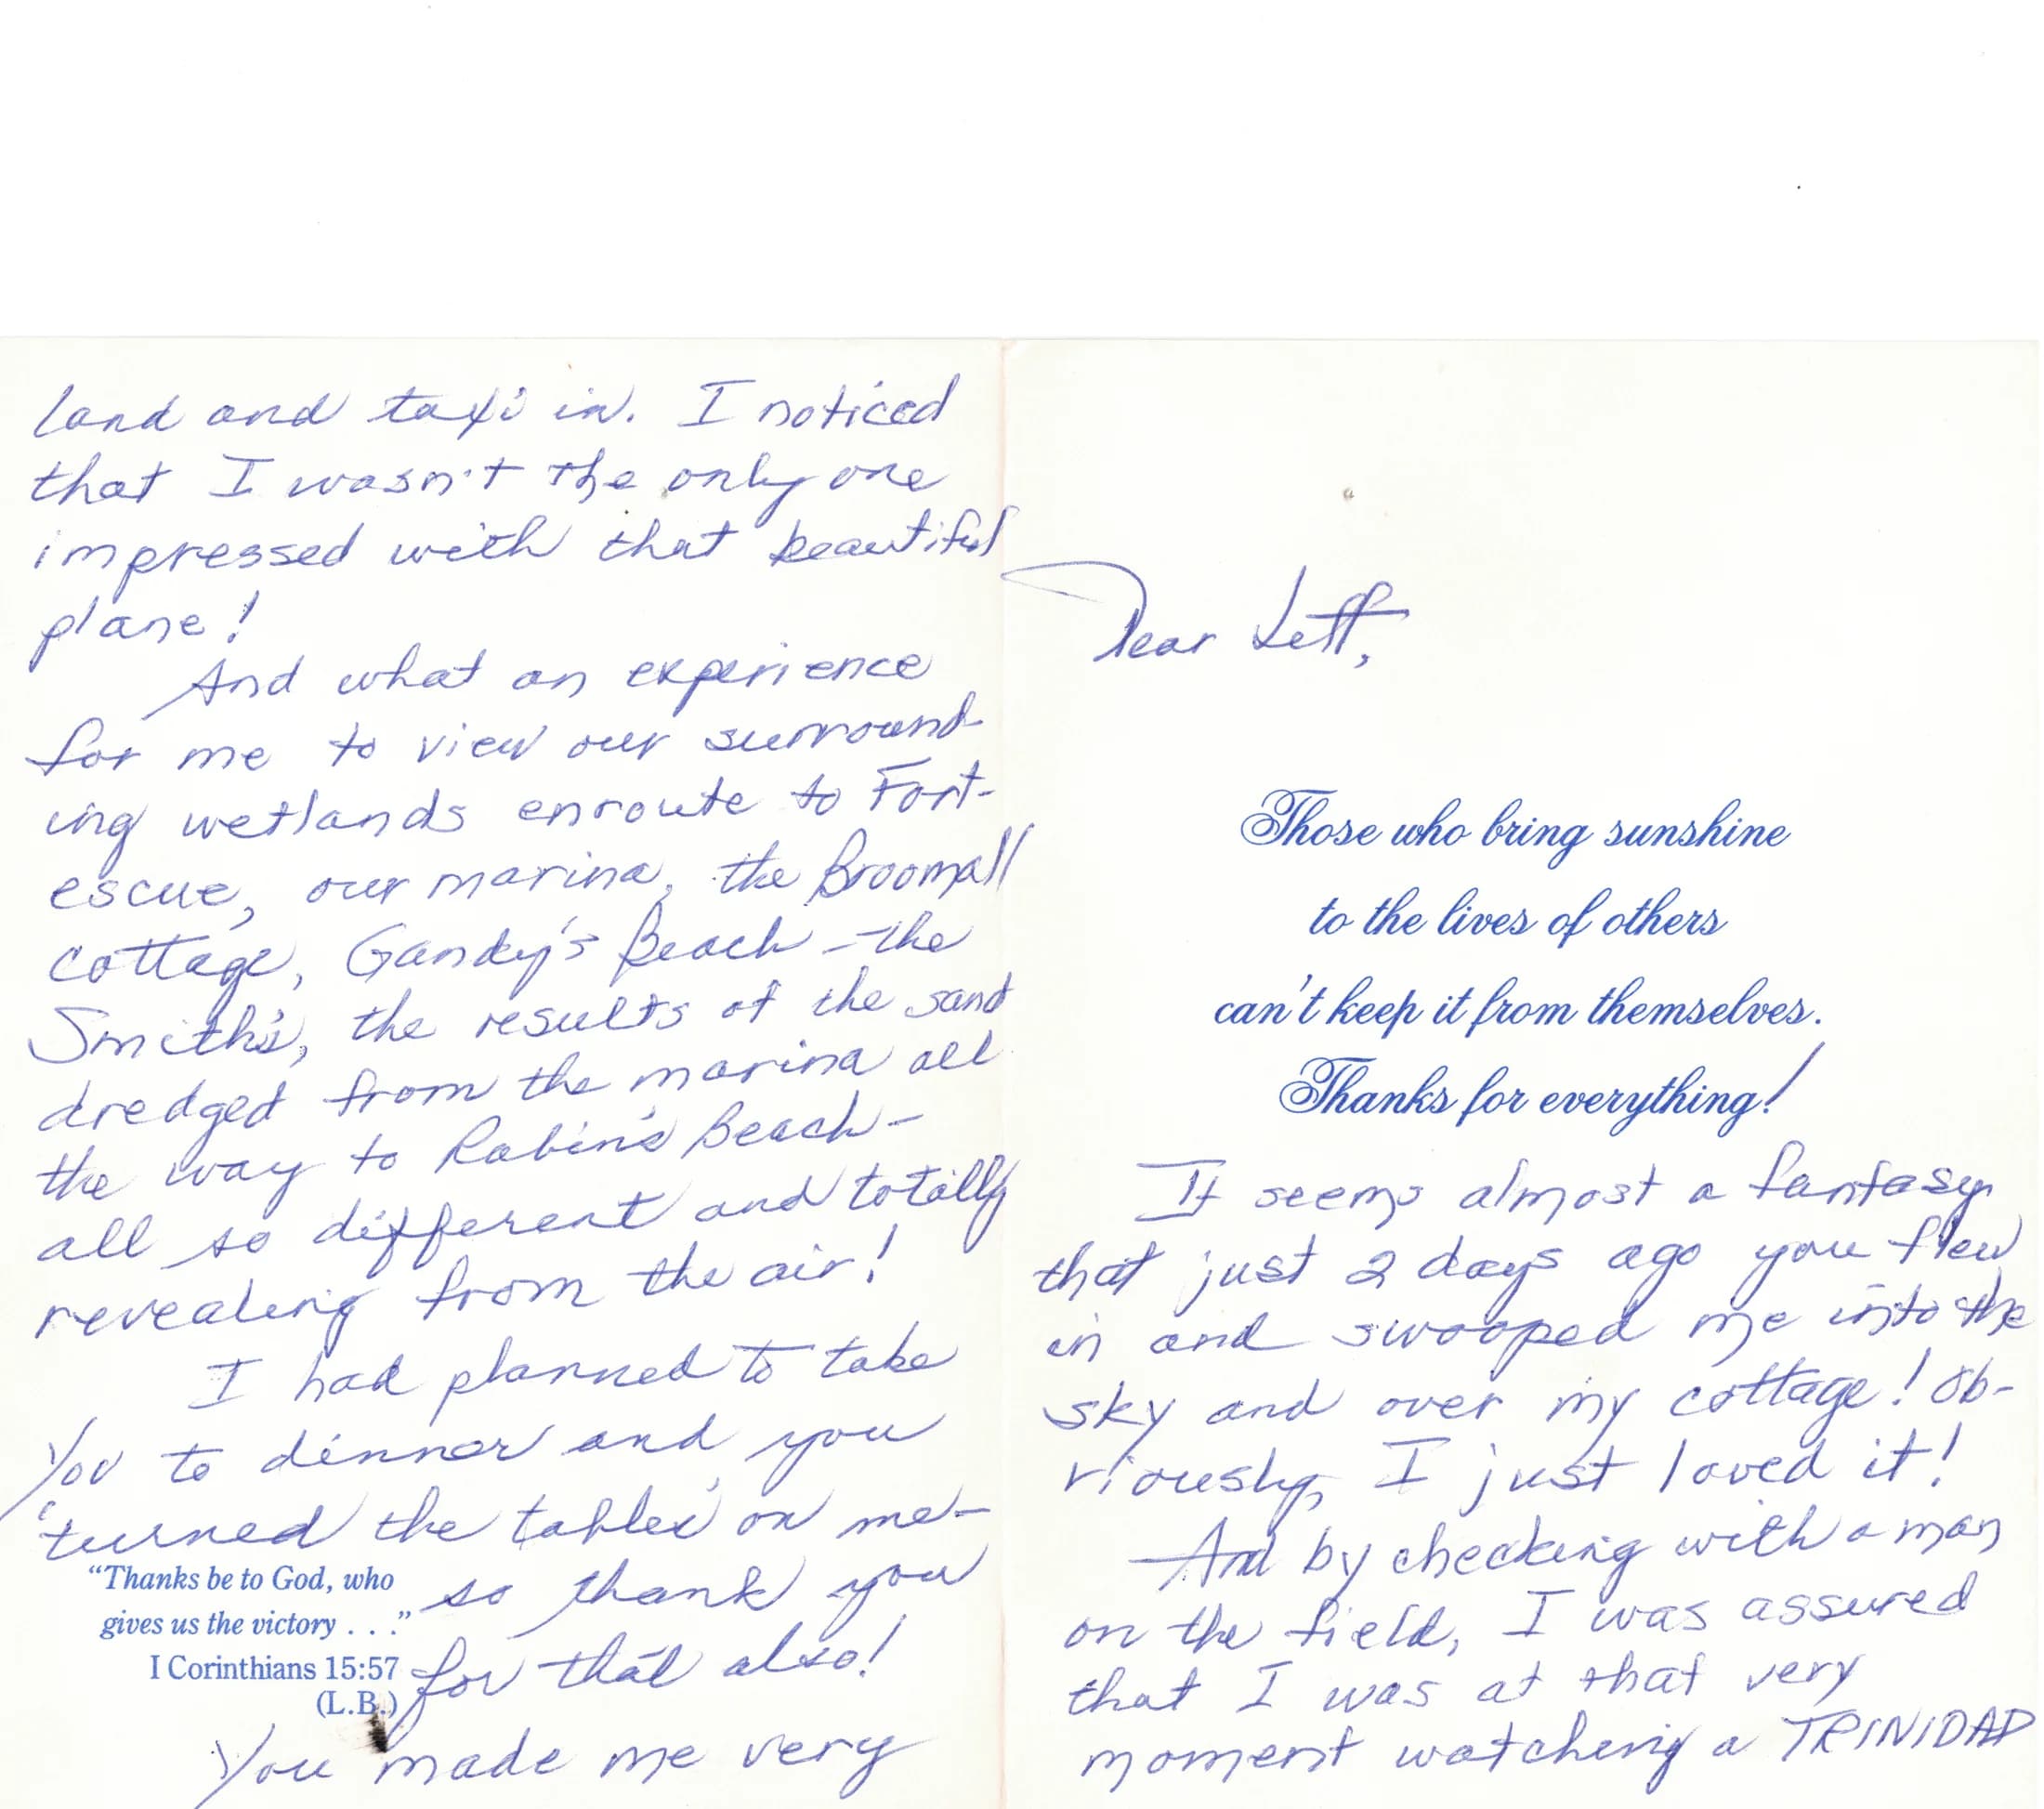 Dear
Those who bring sunshine
to the lives of others
can't keep it from themselves.
Thanks for everything!
It seems almost a fantasy
that just 2 days ago you flew
in and swooped me into the
sky and over my cottage! Ob-
viously, I just loved it!
And by checking with a man
on the field, I was assured
that I was at that very
moment watching a TRINIDAD
land and taxi in. I noticed
that I wasn't the only one
impressed with that beautiful
plane!
And what an experience
for me to view our surround-
ing wetlands enroute to Fort-
escue, our marina, the Broomall
cottage, Gandy's Beach – the
Smith's, the results of the sand
dredged from the marina all
the way to Rabin's Beach –
all so different and totally
revealing from the air!
I had planned to take
you to dinner and you
'turned the tables' on me –
so thank you
for that also!
"Thanks be to God, who
gives us the victory . . ."
I Corinthians 15:57
(L.B.)
You made me very